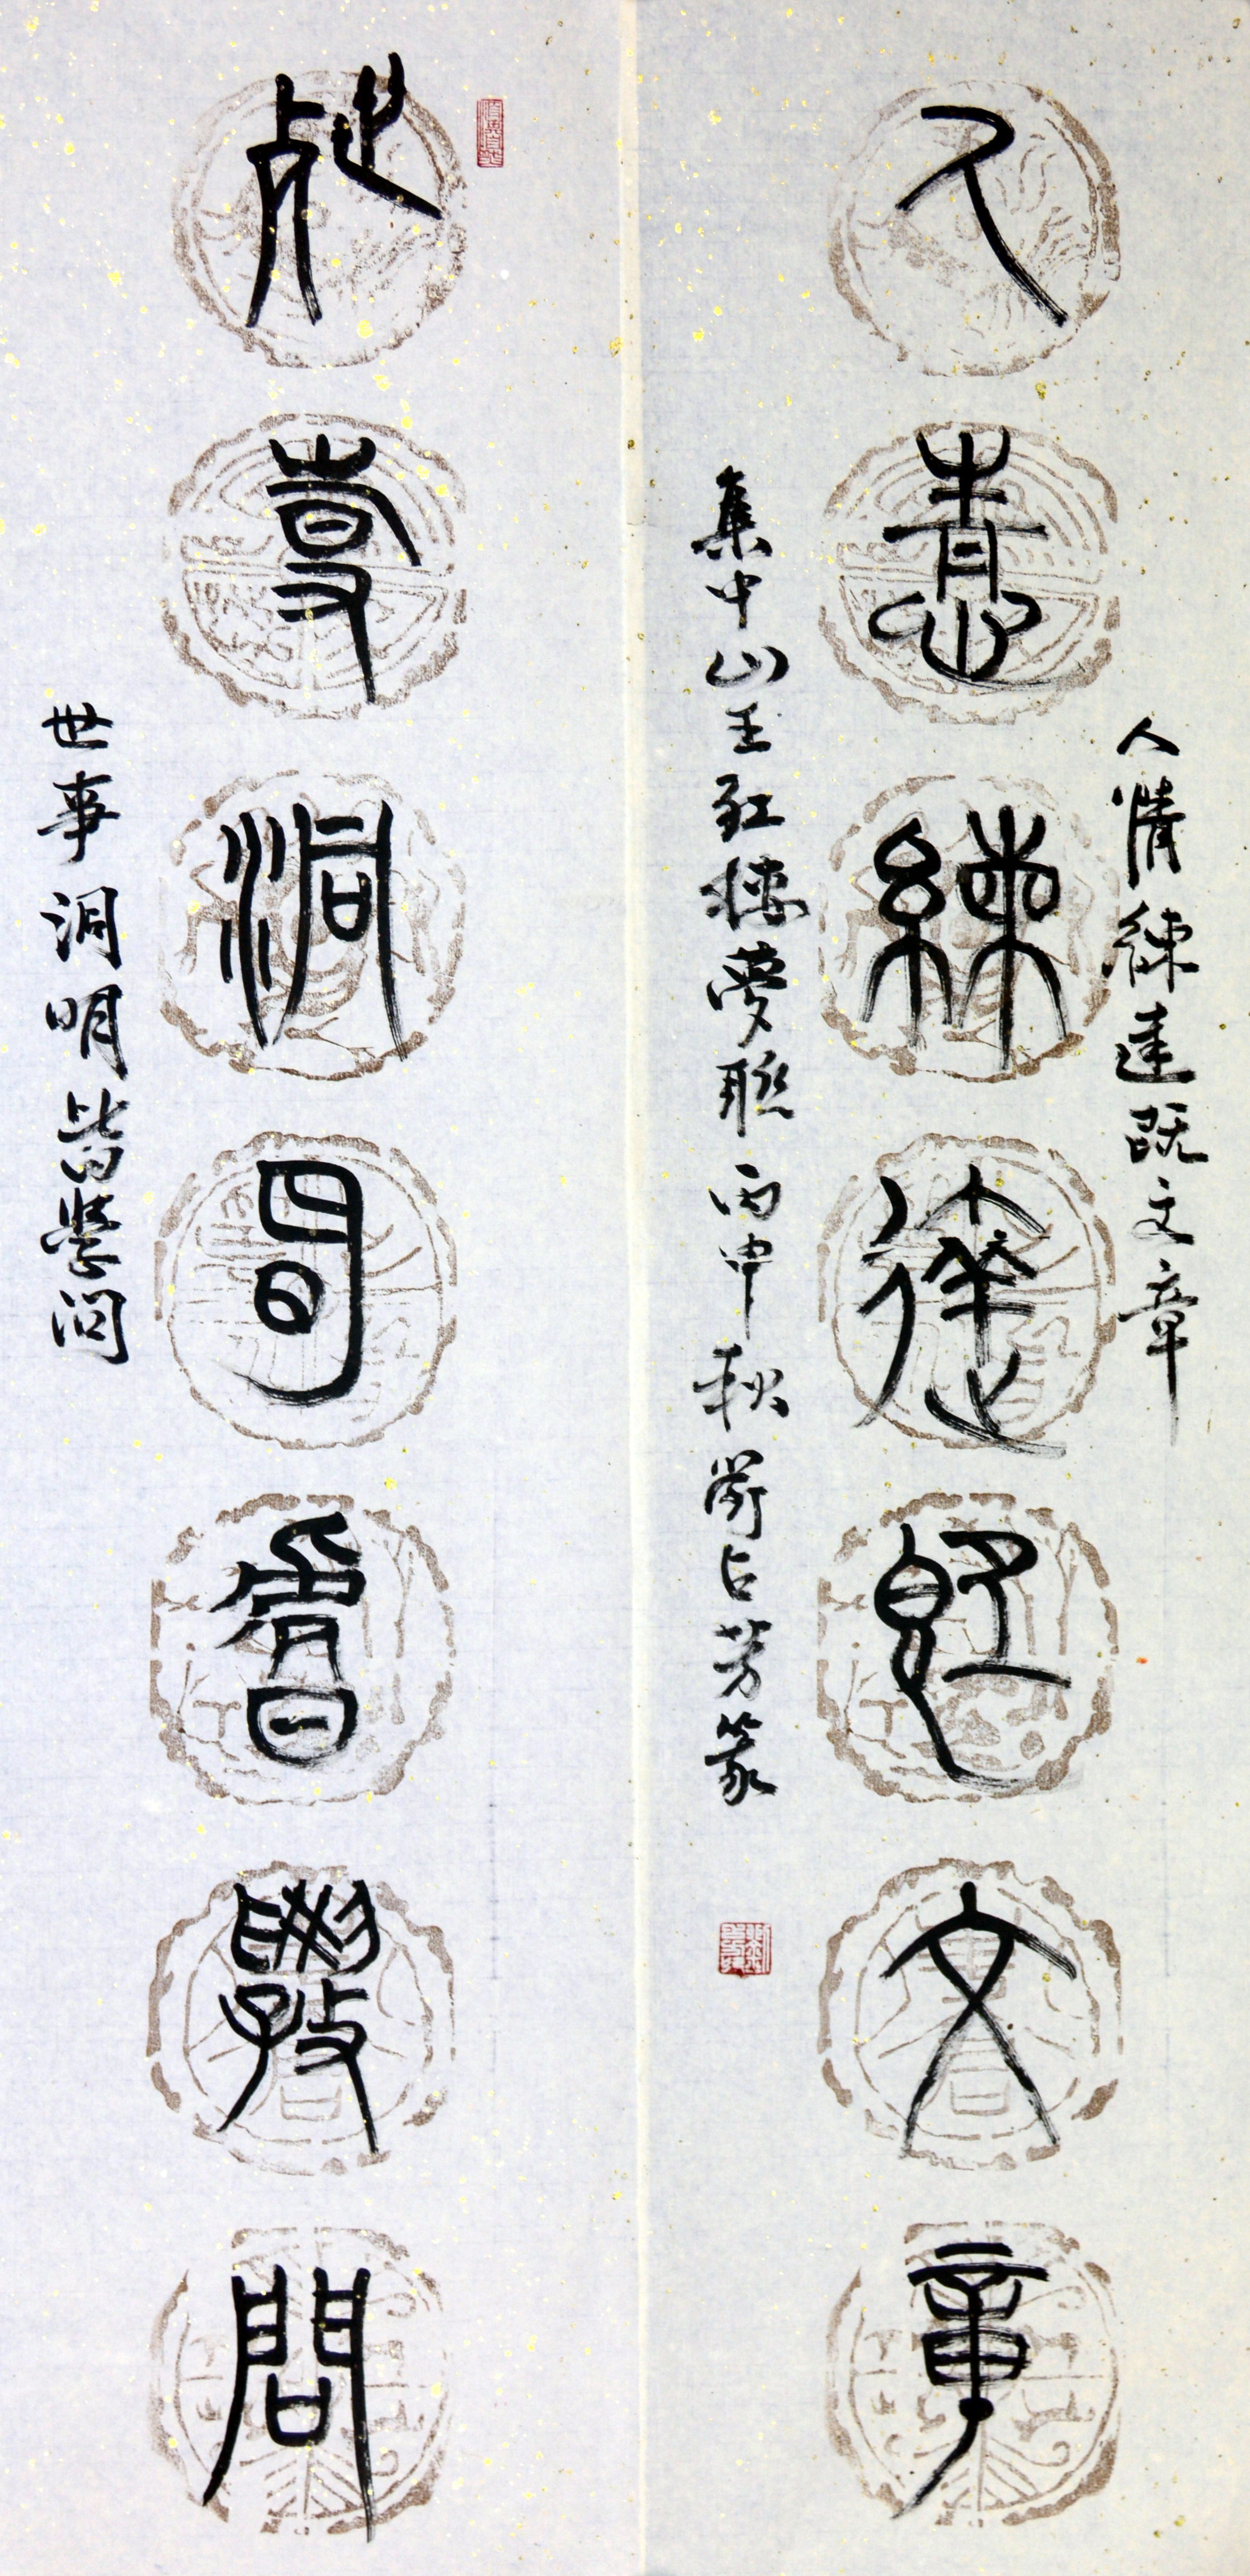 人情練達既文章
人情練達既文章
集中山王紅樓夢聯 丙申秋 占芳篆
世事洞明皆學問
世事洞明皆學問